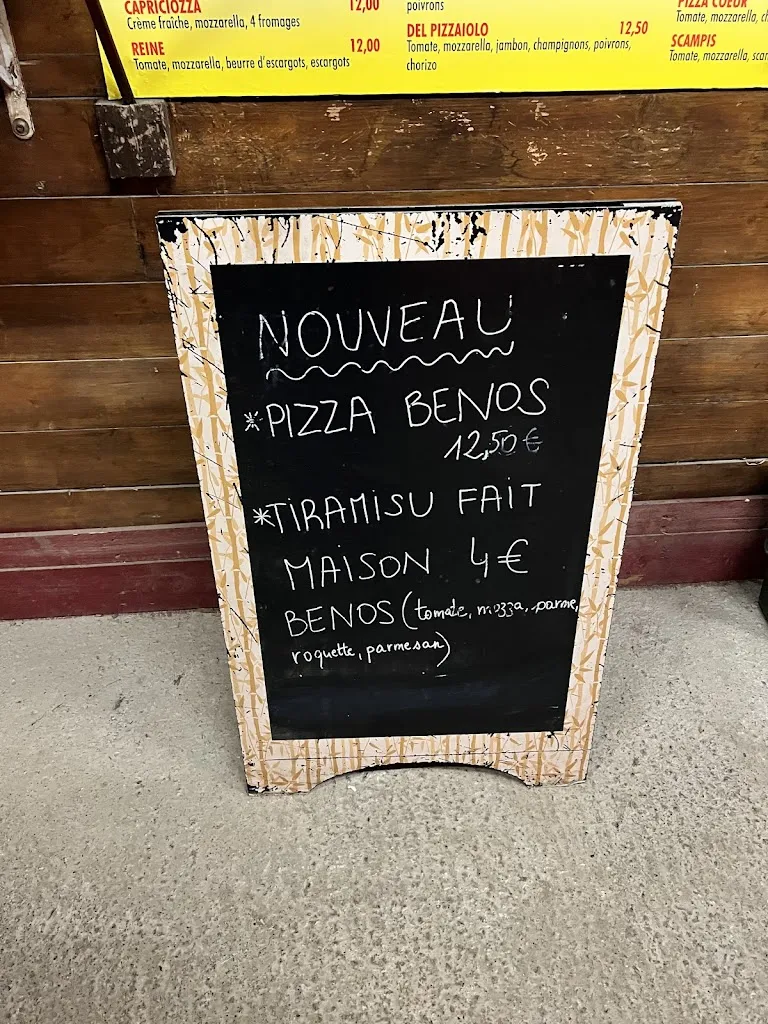 CAPRICIOZZA 12,00
Crème fraîche, mozzarella, 4 fromages
REINE 12,00
Tomate, mozzarella, beurre d'escargots, escargots
poivrons
DEL PIZZAIOLO 12,50
Tomate, mozzarella, jambon, champignons, poivrons,
chorizo
PIZZA COEUR
Tomate, mozzarella,
SCAMPIS
Tomate, mozzarella,
NOUVEAU
*PIZZA BENOS
12,50 €
*TIRAMISU FAIT
MAISON 4€
BENOS (tomate, mozza, parme,
roquette, parmesan)